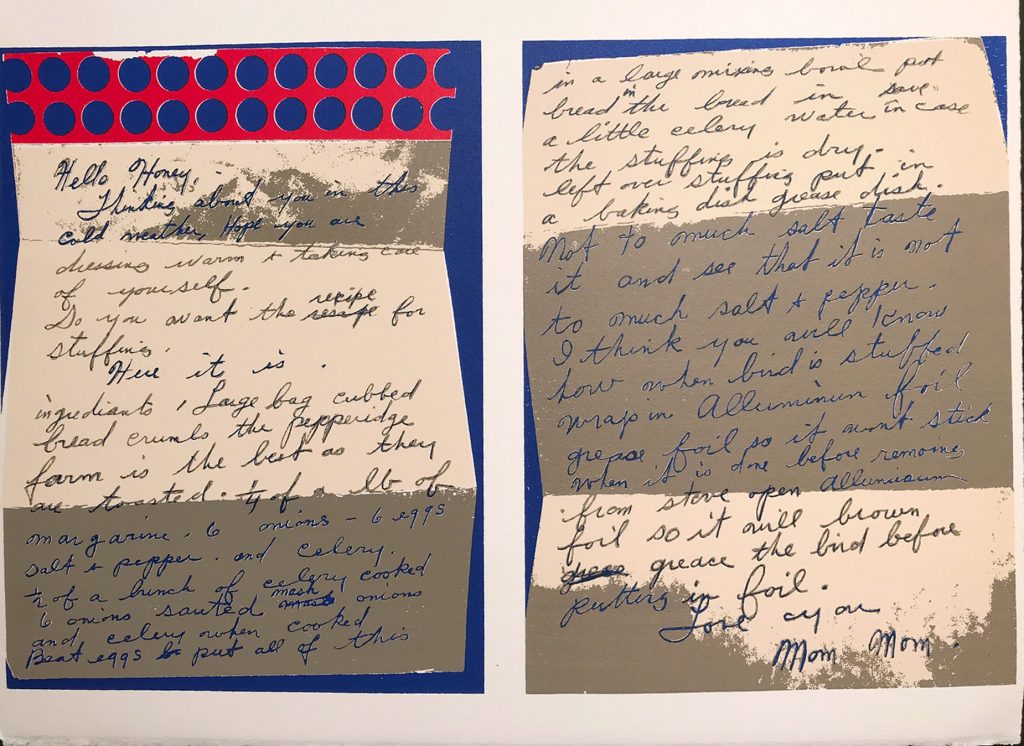 Hello Honey.
Thinking about you in this
cold weather, Hope you are
dressing warm + taking care
of yourself.
Do you want the resipe recipe for
stuffing.
Here it is.
ingrediants, Large bag cubbed
bread crumbs the pepperidge
farm is the best as they
are toasted. 1/4 of a lb of
margarine. 6 onions - 6 eggs
salt + pepper. and celery.
1/2 of a bunch of celery cooked
6 onions sauted mash onions
and celery when cooked
Beat eggs put all of this
in a large mixing bowl put
bread in the bread in save
a little celery water in case
the stuffing is dry.
left over stuffing put in
a baking dish grease dish.
Not to much salt taste
it and see that it is not
to much salt + pepper.
I think you will know
how when bird is stuffed
wrap in Alluminum foil
grease foil so it wont stick
when it is done before remoing
from stove open Alluminum
foil so it will brown
greace the bird before
putting in foil.
Love you
Mom Mom.